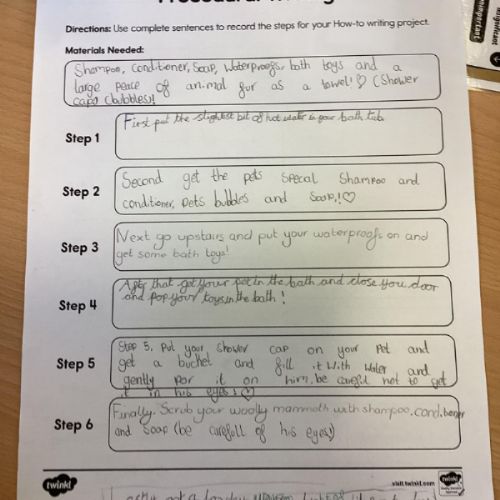 Procedural Writing
Directions: Use complete sentences to record the steps for your How-to writing project.
Materials Needed:
Shampoo, conditioner, Soap, waterproofs, bath toys and a
large peace of animal fur as a towel! ♡ (Shower
caps (bubbles)!
Step 1
First put the slightest bit of hot water in your bath tub.
Step 2
Second get the pets specal shampoo and
conditioner, pets bubbles and soap,!♡
Step 3
Next go upstairs and put your waterproofs on and
get some bath toys!
Step 4
After that get your pet in the bath and close you door
and pop your toys in the bath!
Step 5
Step 5, Put your shower cap on your pet and
get a bucket and fill it with water and
gently por it on him, be carefil not to get
it in his eyes!♡
Step 6
Finally, Scrub your woolly mammoth with shampoo, conditioner
and soap (be carefull of his eyes)
twinkl
visit twinkl.com
twinkl
important
significant